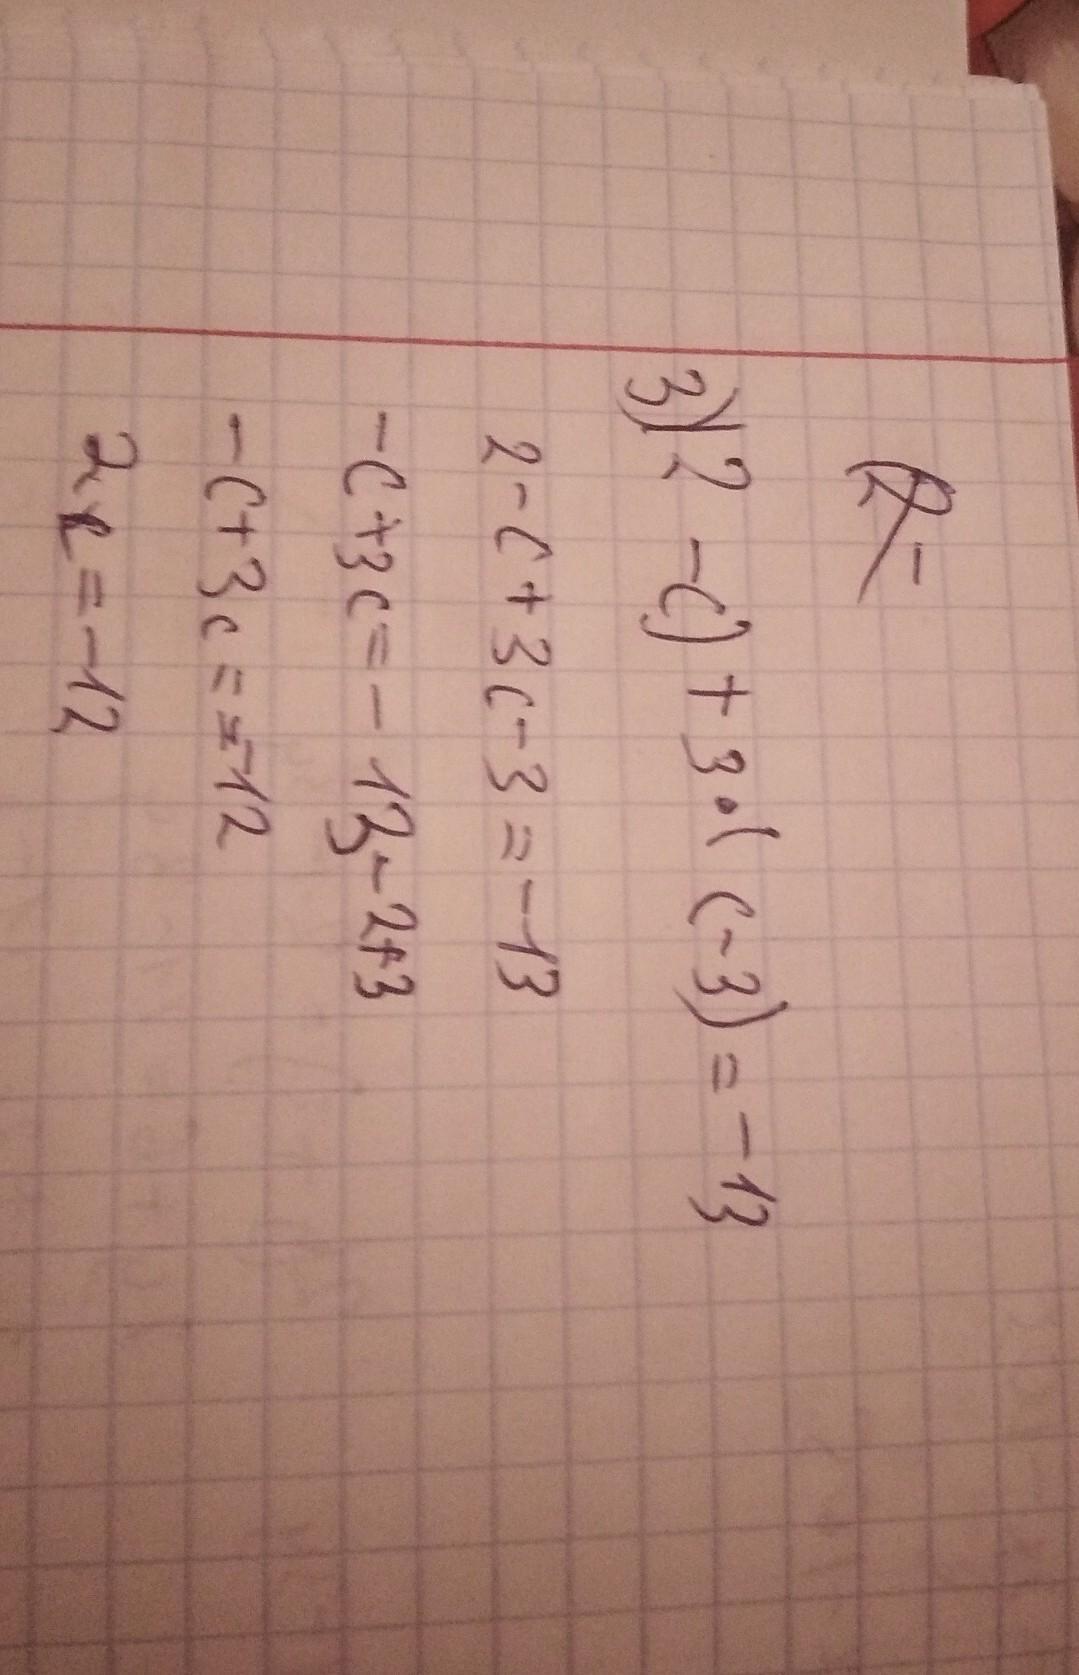 3) (2 - c) + 3 · ( c - 3) = - 13
2 - c + 3 c - 3 = - 13
- c + 3 c = - 13 - 2 + 3
- c + 3 c = = -12
2 c = - 12